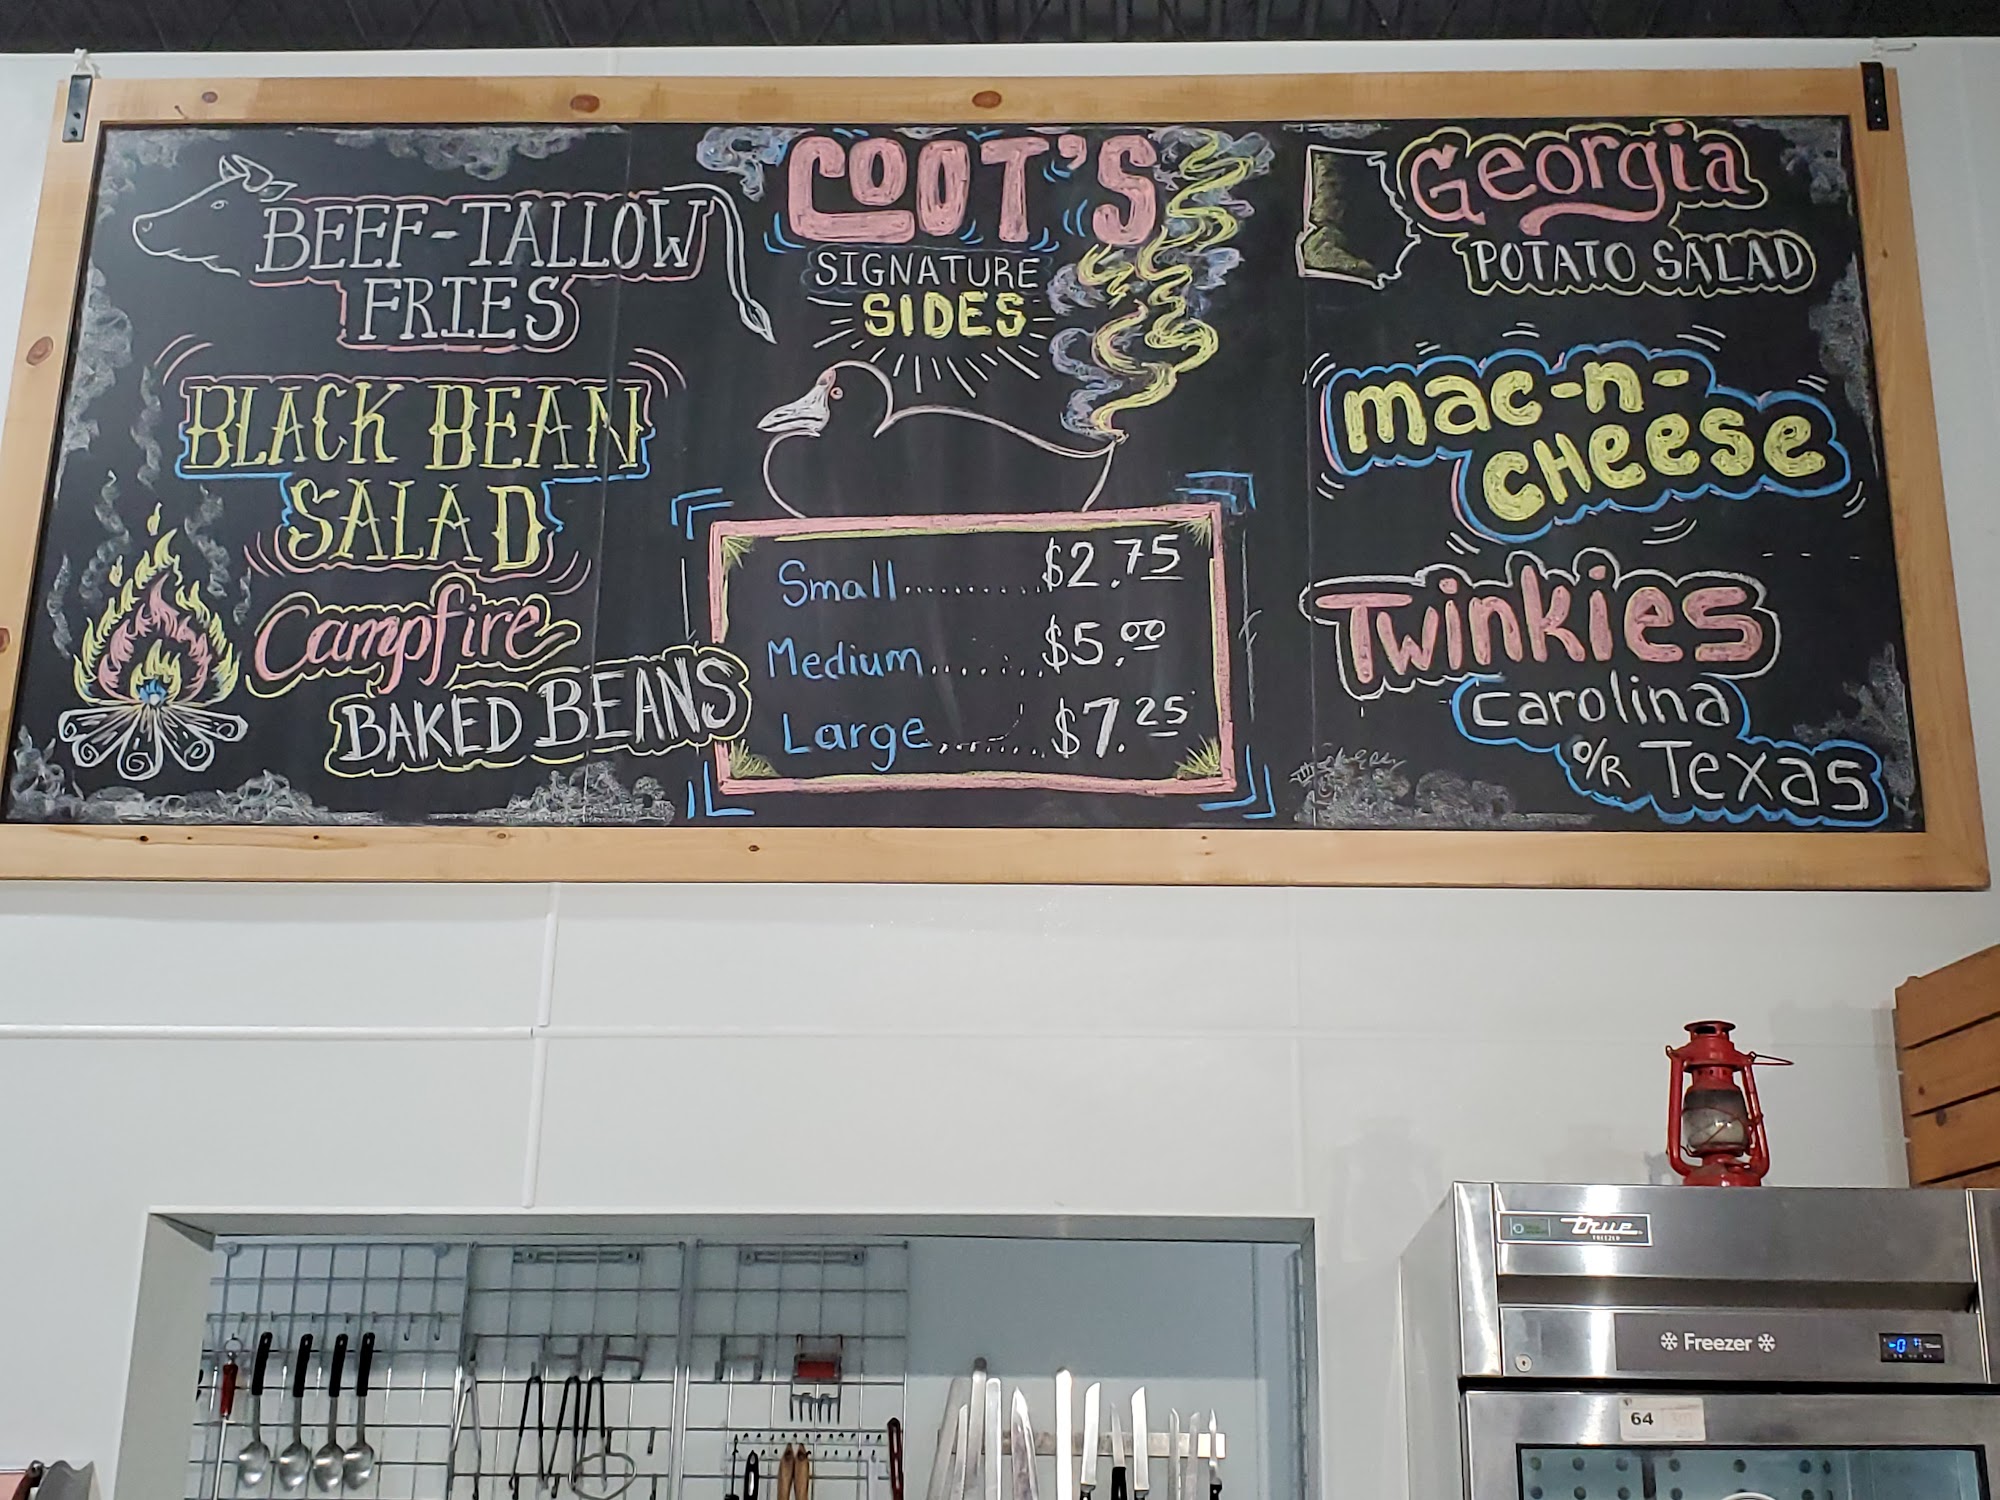 BEEF-TALLOW
FRIES
BLACK BEAN
SALAD
Campfire
BAKED BEANS
COOT'S
SIGNATURE
SIDES
Small.............$2.75
Medium..........$5.00
Large...........$7.25
Georgia
POTATO SALAD
mac-n-
CHeese
Twinkies
Carolina
O/R Texas
True
FREEZER
Freezer
64